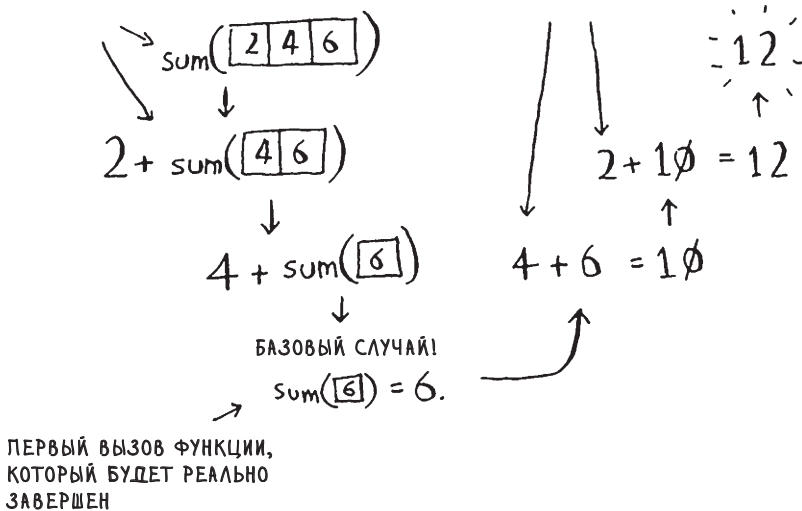 sum([2 4 6])
2 + sum([4 6])
4 + sum([6])
БАЗОВЫЙ СЛУЧАЙ!
sum([6]) = 6.
ПЕРВЫЙ ВЫЗОВ ФУНКЦИИ,
КОТОРЫЙ БУДЕТ РЕАЛЬНО
ЗАВЕРШЕН
4 + 6 = 10
2 + 10 = 12
12